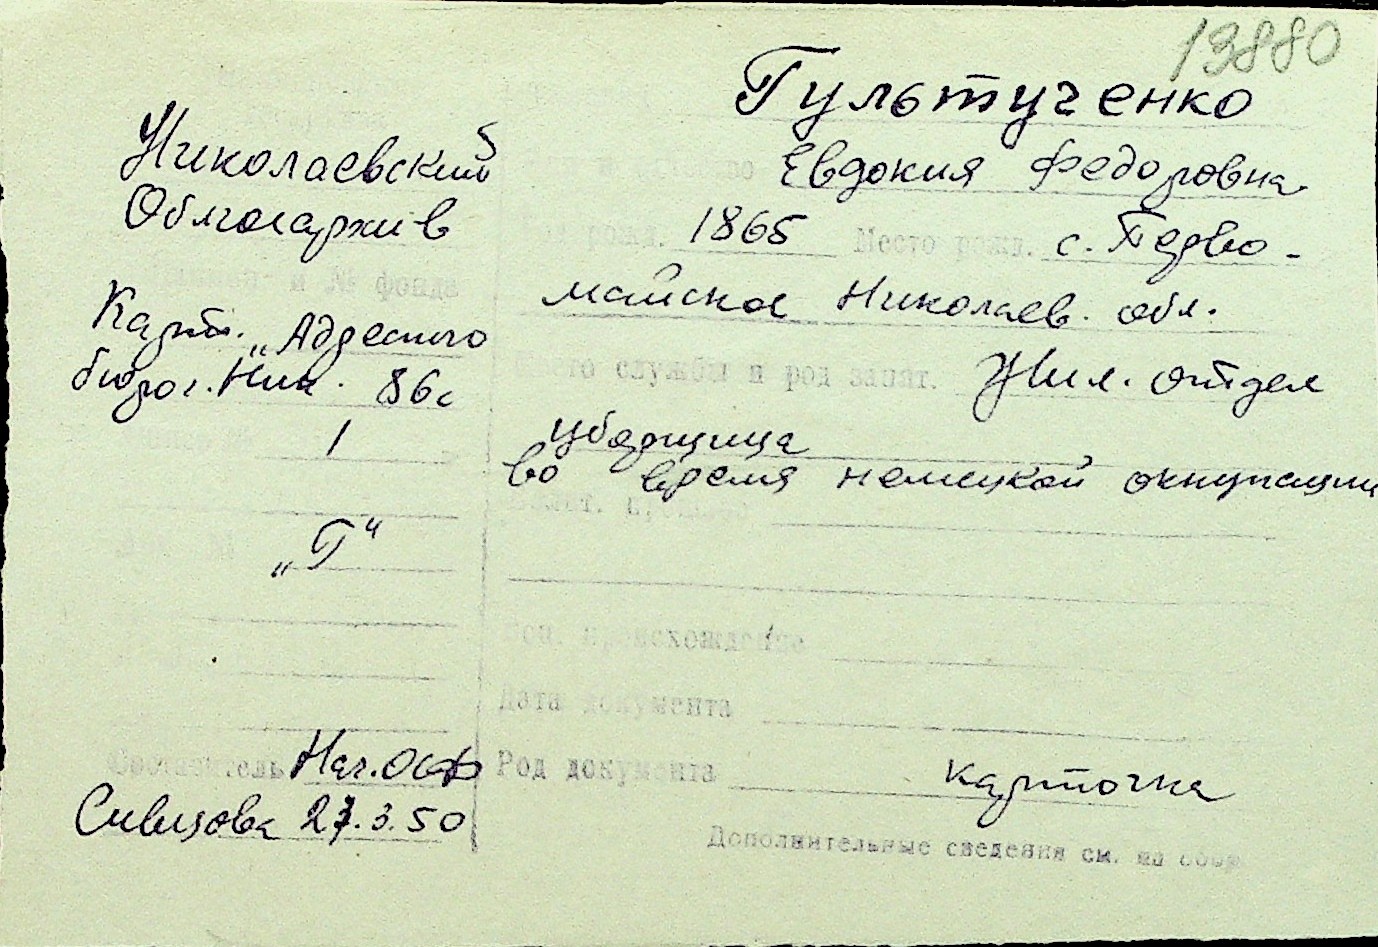 13880
Гультученко
Николаевский
Облгосархив
Евдокия Федоровна
год рожд. 1865 Место рожд. с. Перво-
и № фонда
майское Николаев. обл.
Карт. „Адресного
бюро г. Ник. 86с
службы и род занят. Жил. отдел
1
уборщица
во время немецкой оккупации
„Г"
Соц. происхождение
Дата документа
Составитель Нач. ОСФ
Род документа карточка
Сивцова 27.3.50
Дополнительные сведения см. на обор.